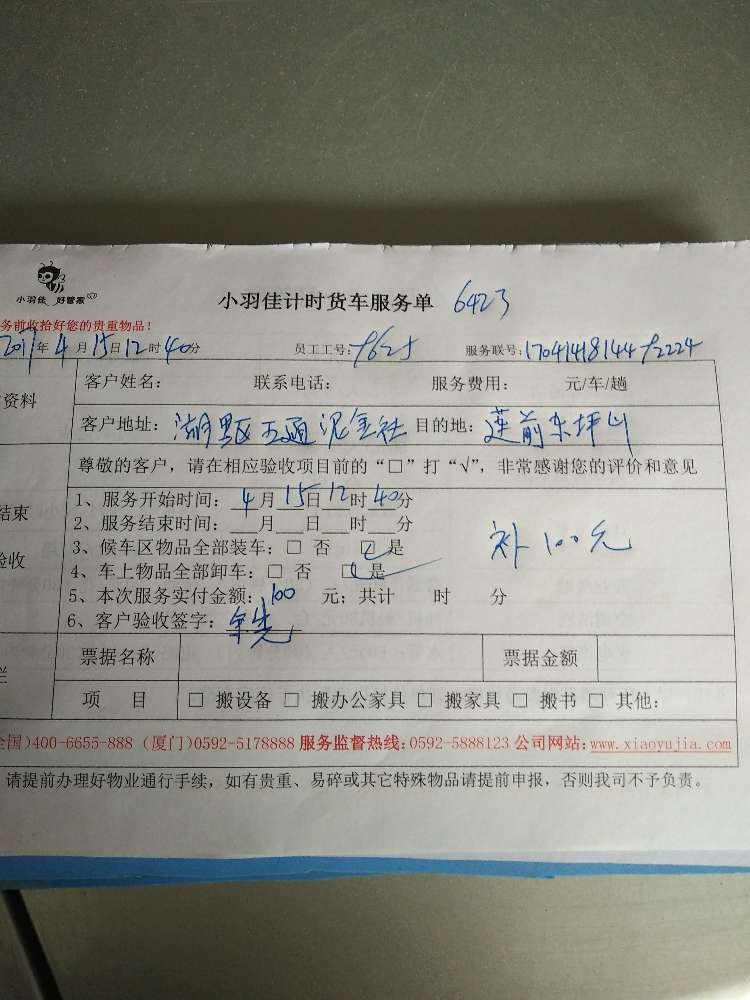 小羽佳 好管家
小羽佳计时货车服务单 6423
务前收拾好您的贵重物品！
2017年4月15日12时40分 员工工号： 服务联号:
资料 客户姓名： 联系电话： 服务费用： 元/车/趟
客户地址：湖里区五通泥金社 目的地：莲前东坪山
尊敬的客户，请在相应验收项目前的“□”打“√”，非常感谢您的评价和意见
结束 1、服务开始时间：4月15日12时40分
2、服务结束时间：___月___日___时___分
验收 3、候车区物品全部装车：□ 否 □ 是
补100元
4、车上物品全部卸车：□ 否 □ 是
5、本次服务实付金额：100 元；共计 时 分
6、客户验收签字：
栏 票据名称 票据金额
项 目 □ 搬设备 □ 搬办公家具 □ 搬家具 □ 搬书 □ 其他：
全国)400-6655-888 (厦门)0592-5178888 服务监督热线:0592-5888123 公司网站:www.xiaoyujia.com
请提前办理好物业通行手续，如有贵重、易碎或其它特殊物品请提前申报，否则我司不予负责。